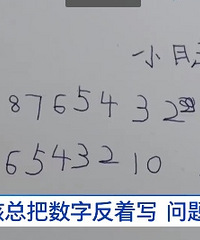 小日
8 7 6 5 4 3 2
6 5 4 3 2 1 0
总把数字反着写 问题